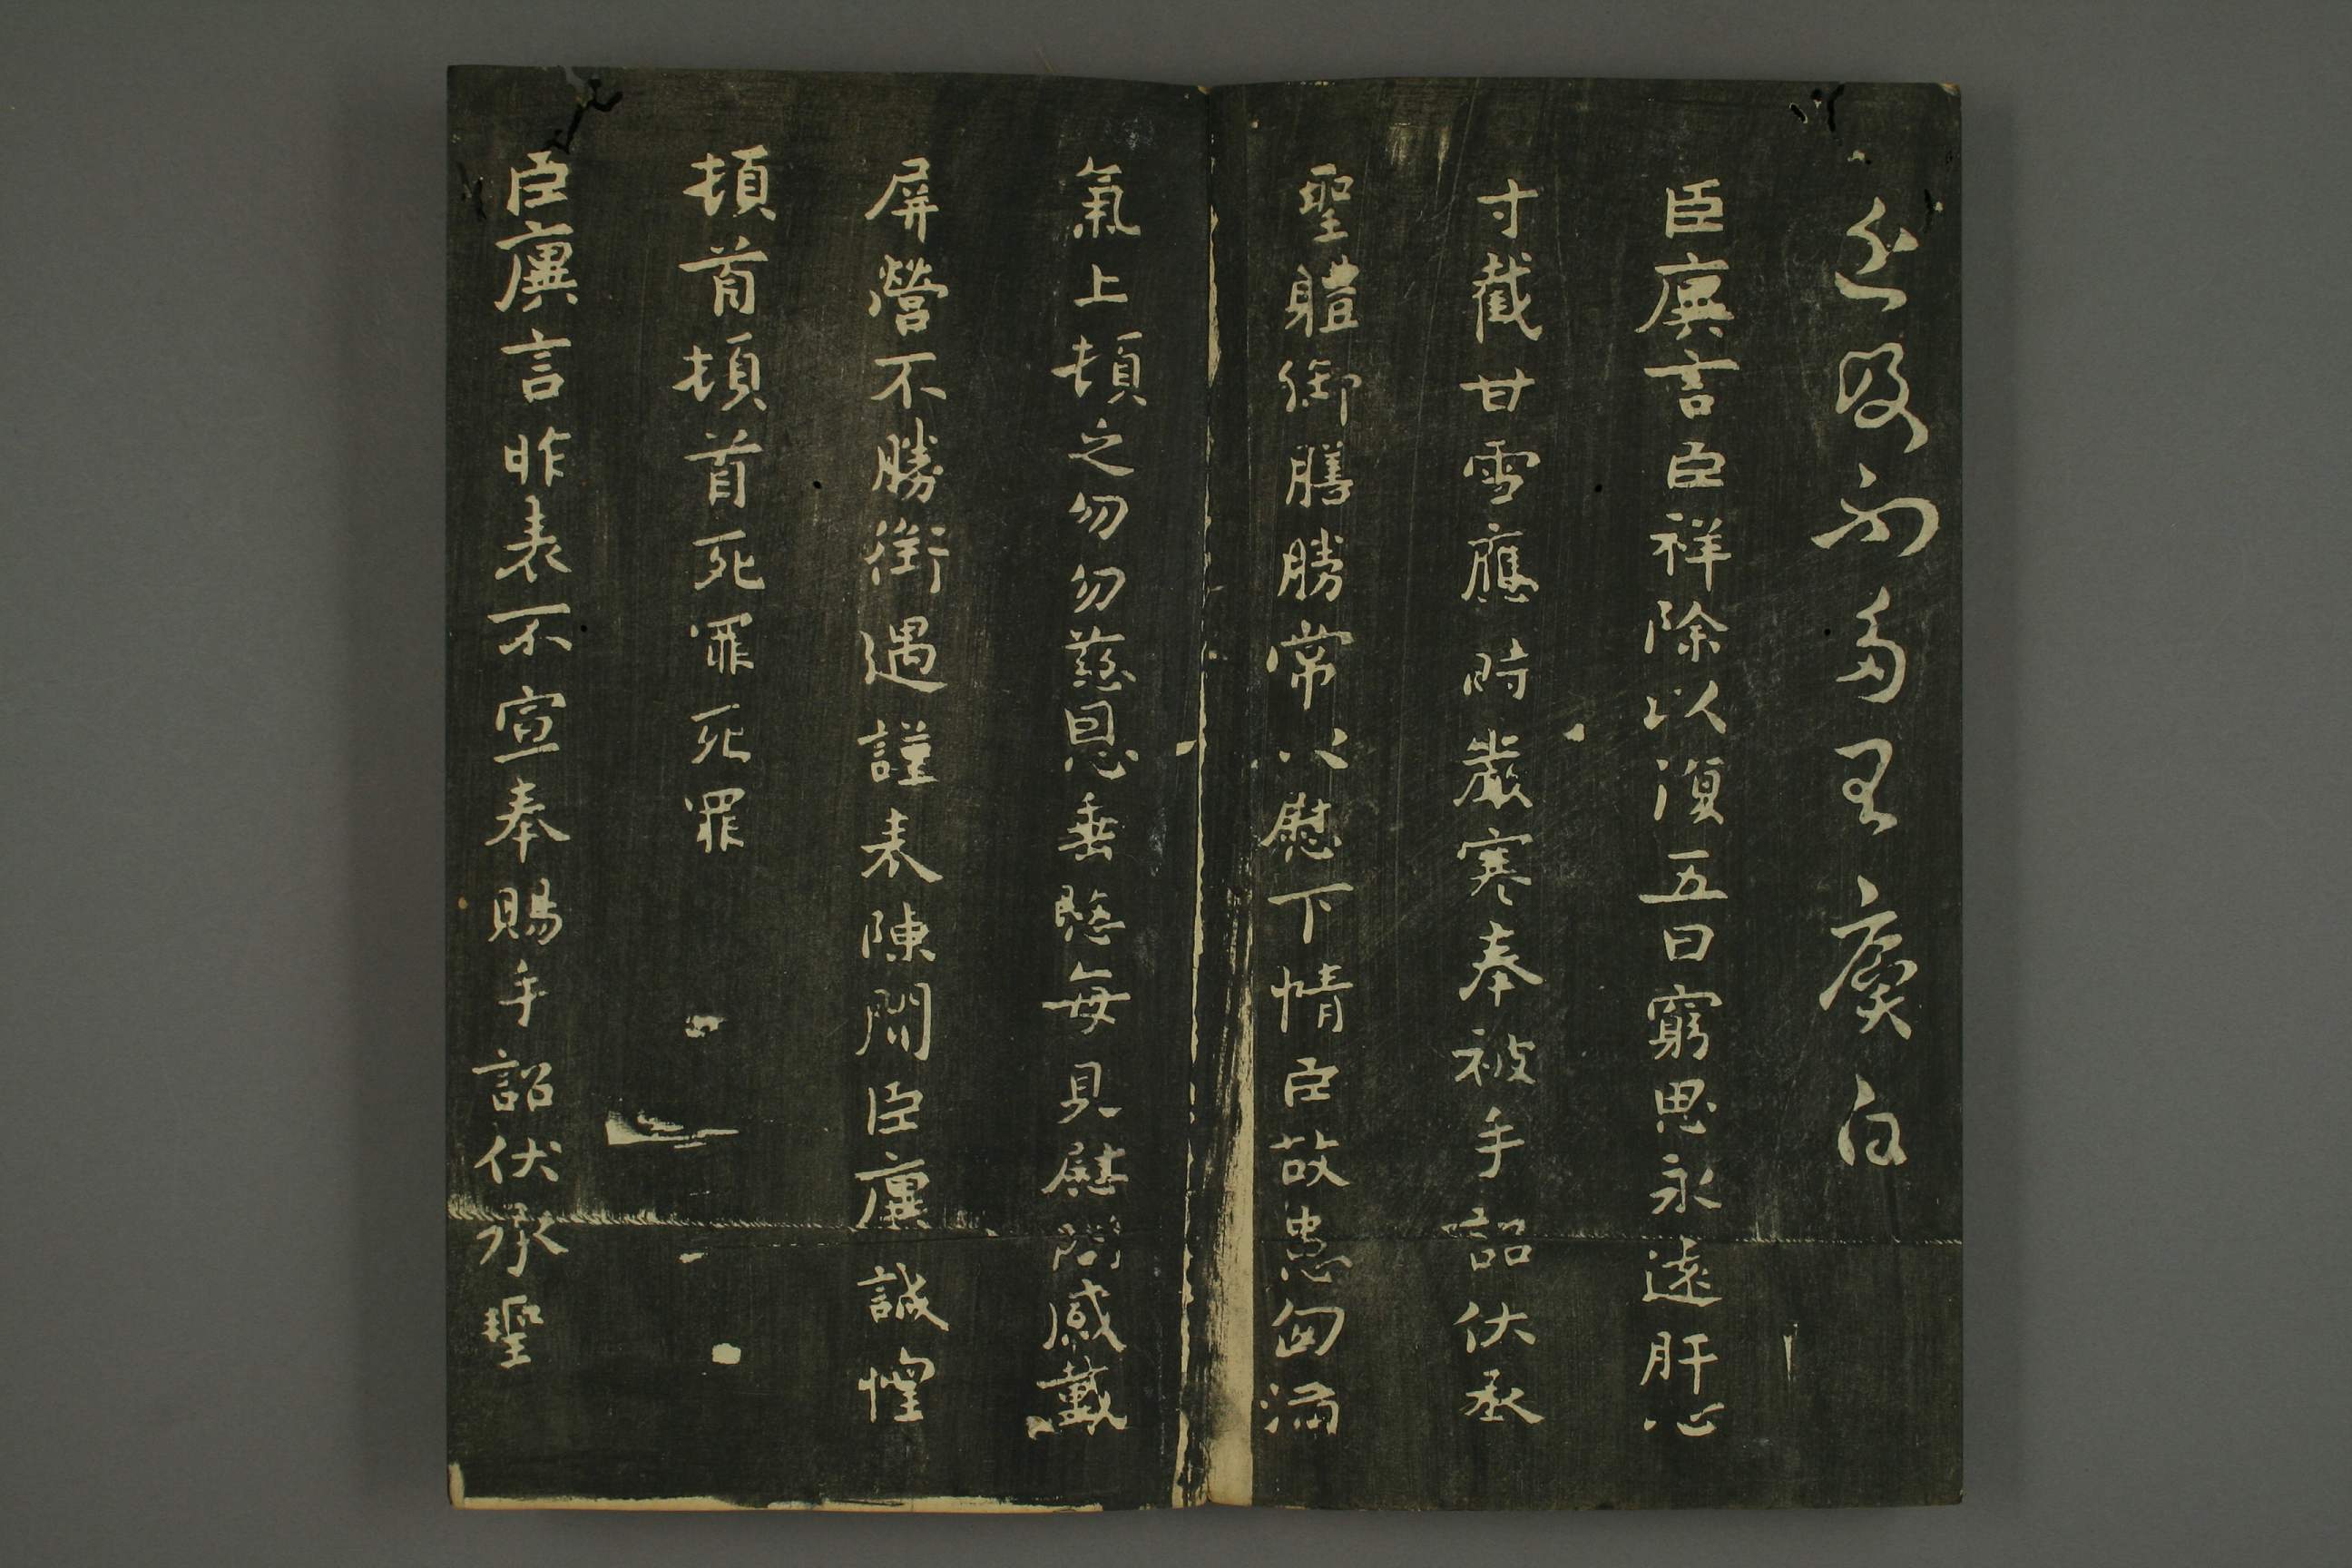 及不多王廙白
臣廙言臣祥除以復五日窮思永遠肝心
寸截甘雪應時嚴寒奉被手詔伏承
聖體御膳勝常以慰下情臣故患匈滿
氣上頓乏勿勿慈恩垂愍每見慰問感戴
屏營不勝銜遇謹表陳聞臣廙誠惶
頓首頓首死罪死罪
臣廙言昨表不宣奉賜手詔伏承聖